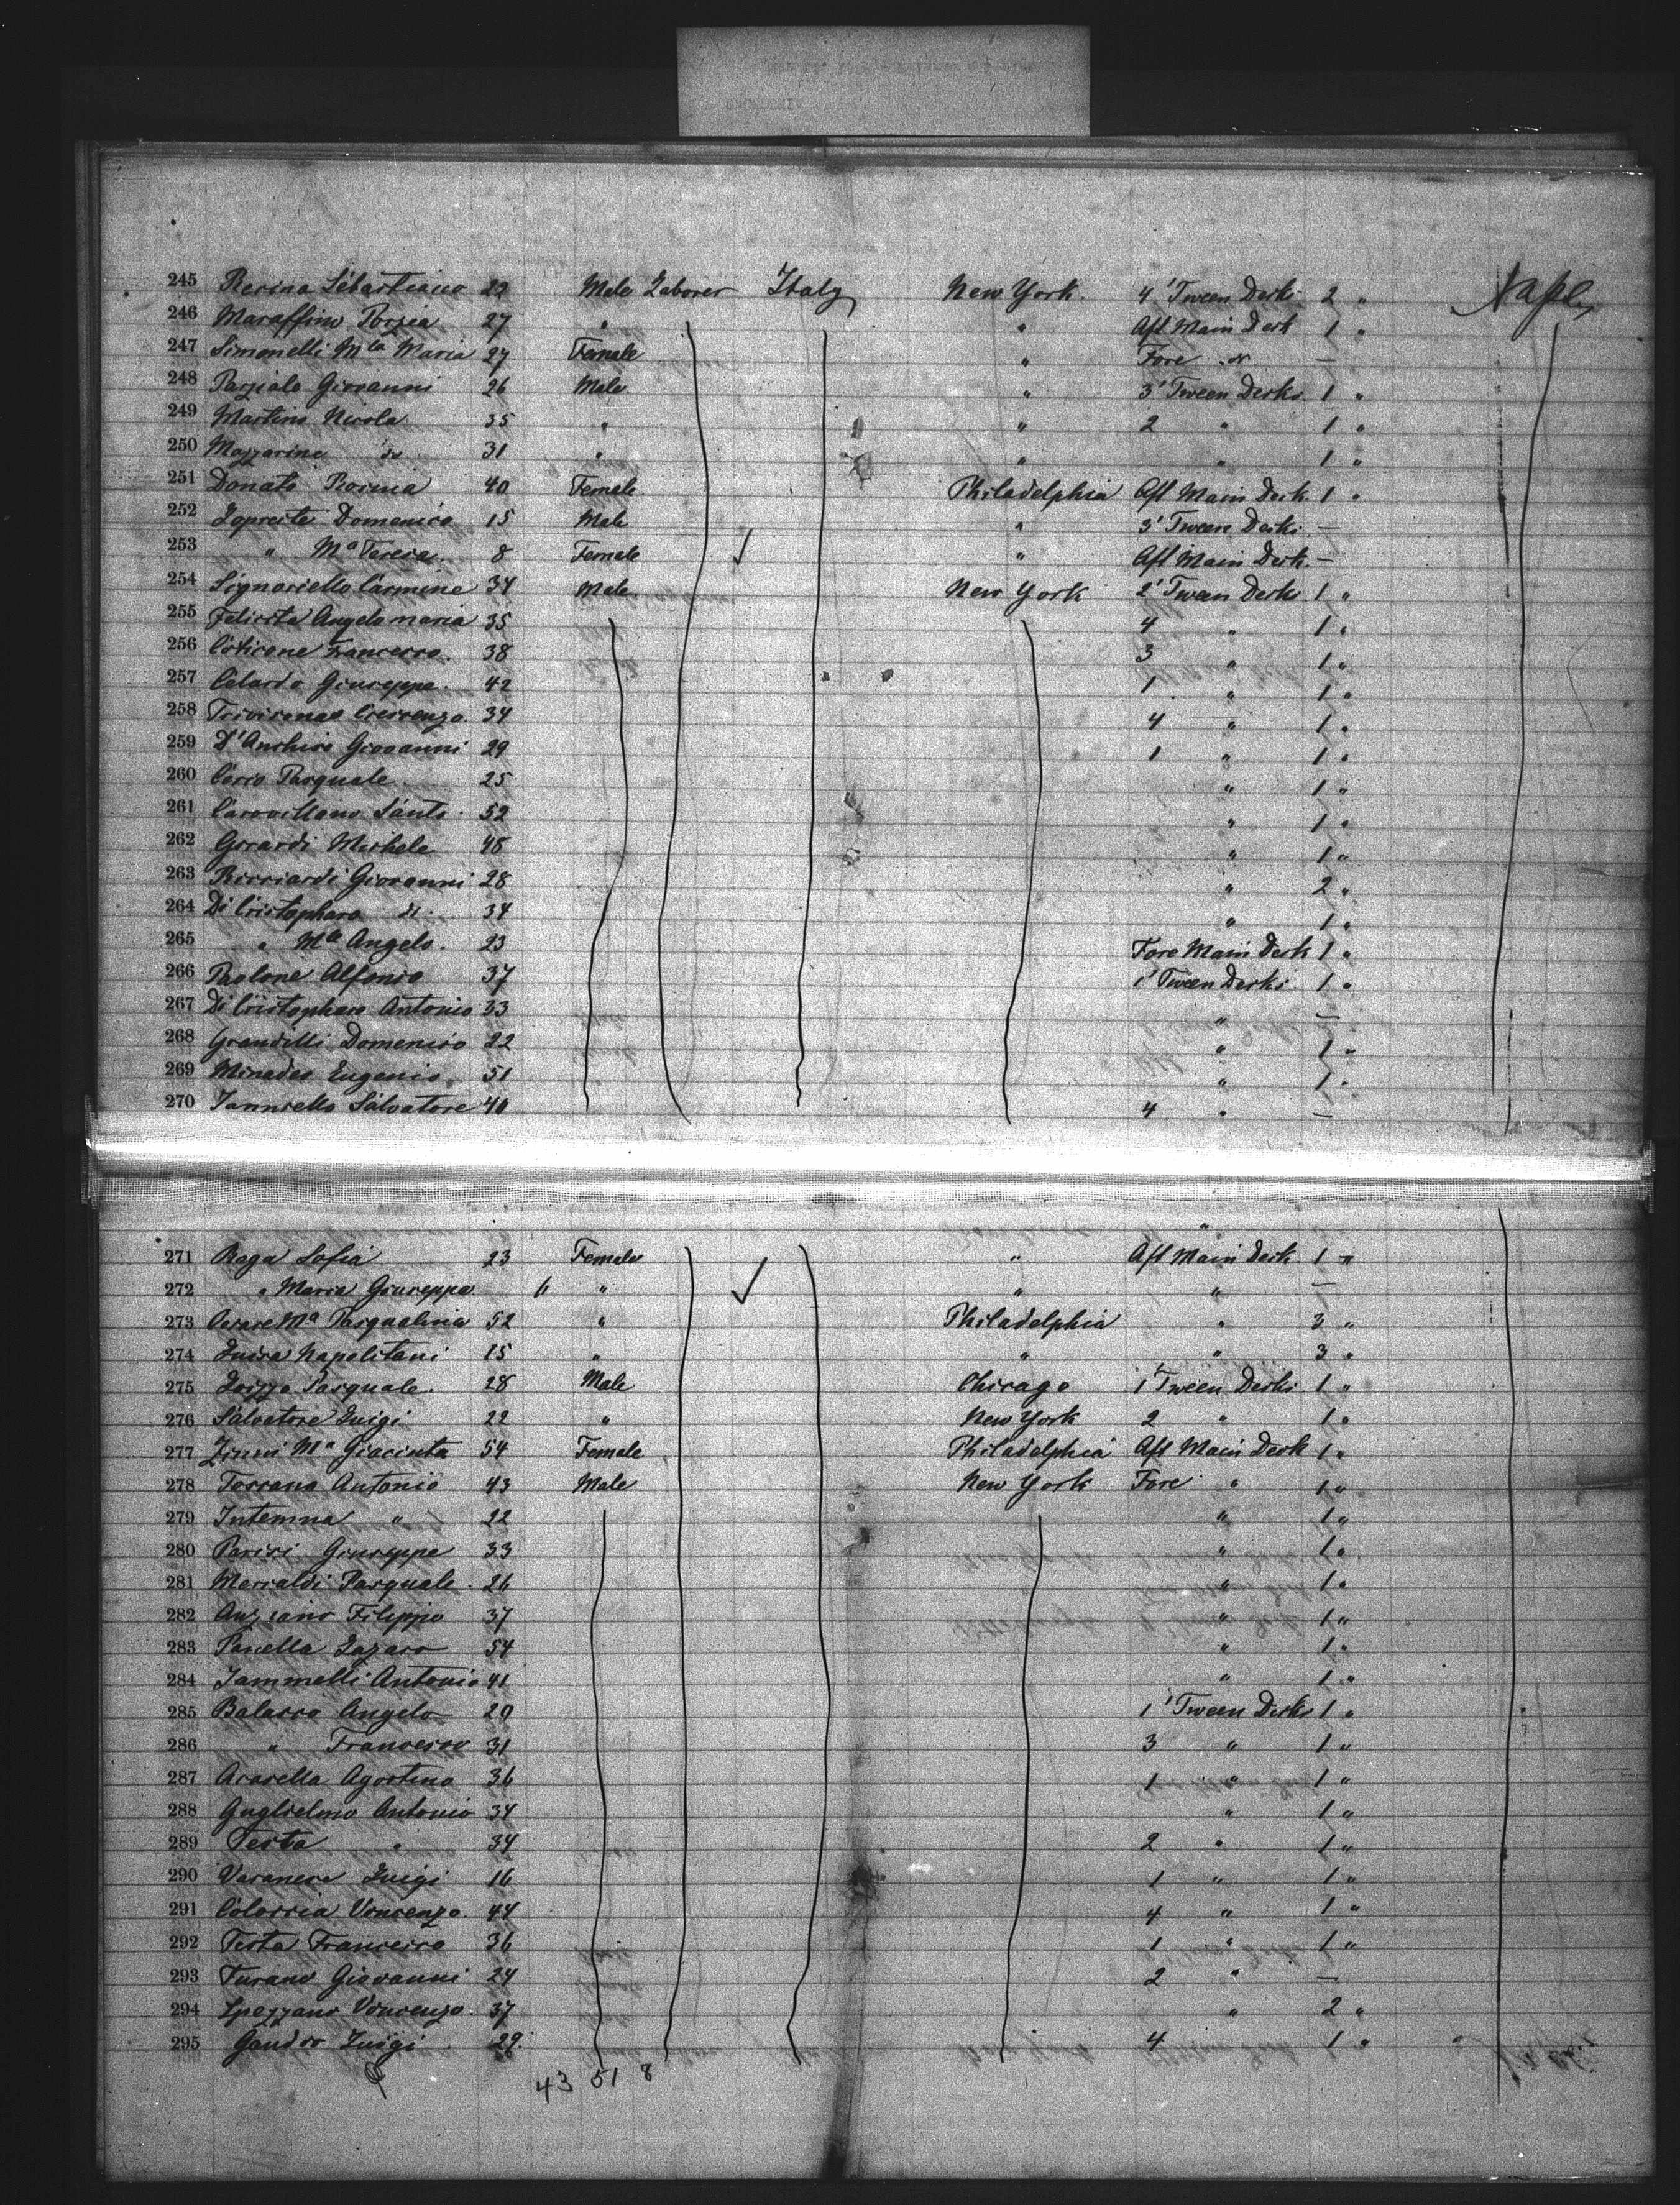 245 Resina Sebastiano 22 Male Laborer Italy New York. 4' Tween Decks 2 " Naples
246 Maraffino Porzia 27 " " Aft Main Deck 1 "
247 Simonelli Mla Maria 27 Female " Fore do —
248 Parziale Giovanni 26 Male " 3' Tween Decks 1 "
249 Martino Nicola 35 " " 2 " 1 "
250 Mazzarine do 31 " " " 1 "
251 Donato Rosina 40 Female Philadelphia Aft Main Deck 1 "
252 Loprete Domenico 15 Male " 3' Tween Decks —
253 " Ma Teresa 8 Female " Aft Main Deck —
254 Signoriello Carmine 34 Male New York 2' Tween Decks 1 "
255 Felicita Angelomaria 35 4 " 1 "
256 Francesco 38 3 " 1 "
257 Celardo Giuseppe 42 1 " 1 "
258 Crescenzo 34 4 " 1 "
259 D'Anchise Giovanni 29 1 " 1 "
260 Corso Pasquale 25 " 1 "
261 Carovillano Santo 52 " 1 "
262 Gerardi Michele 48 " 1 "
263 Ricciardi Giovanni 28 " 2 "
264 Di Cristopharo di 34 " 1 "
265 " Mle Angelo 23 Fore Main Deck 1 "
266 Paolone Alfonso 37 1' Tween Decks 1 "
267 Di Cristopharo Antonio 33 " —
268 Grandilli Domenico 22 " 1 "
269 Minades Eugenio 51 " 1 "
270 Ianniello Salvatore 40 4 " —
"
271 Raga Sofia 23 Female " Aft Main Deck 1 "
272 " Maria Giuseppa 6 " " " —
273 Cesare Ma Pasqualina 52 " Philadelphia " 3 "
274 Luisa Napolitani 15 " " " 3 "
275 Loizzo Pasquale. 28 Male Chicago 1' Tween Decks 1 "
276 Salvatore Luigi 22 " New York 2 " 1 "
277 Zinni Ma Giacinta 54 Female Philadelphia Aft Main Deck 1 "
278 Torrano Antonio 43 Male New York Fore " 1 "
279 Intemna " 22 " 1 "
280 Parisi Giuseppe 33 " 1 "
281 Marraldi Pasquale 26 " 1 "
282 Anziano Filippo 37 " 1 "
283 Panella Lazaro 54 " 1 "
284 Iammelli Antonio 41 " 1 "
285 Balasco Angelo 29 1' Tween Decks 1 "
286 " Francesco 31 3 " 1 "
287 Acasella Agostino 36 1 " 1 "
288 Guglielmo Antonio 34 " 1 "
289 Testa " 34 2 " 1 "
290 Varanese Luigi 16 1 " 1 "
291 Colarcia Vincenzo 44 4 " 1 "
292 Testa Francesco 36 1 " 1 "
293 Furano Giovanni 24 2 " —
294 Spezzano Vincenzo 37 " 2 "
295 Gaudio Luigi 29. 4 " 1 "
43 51 8